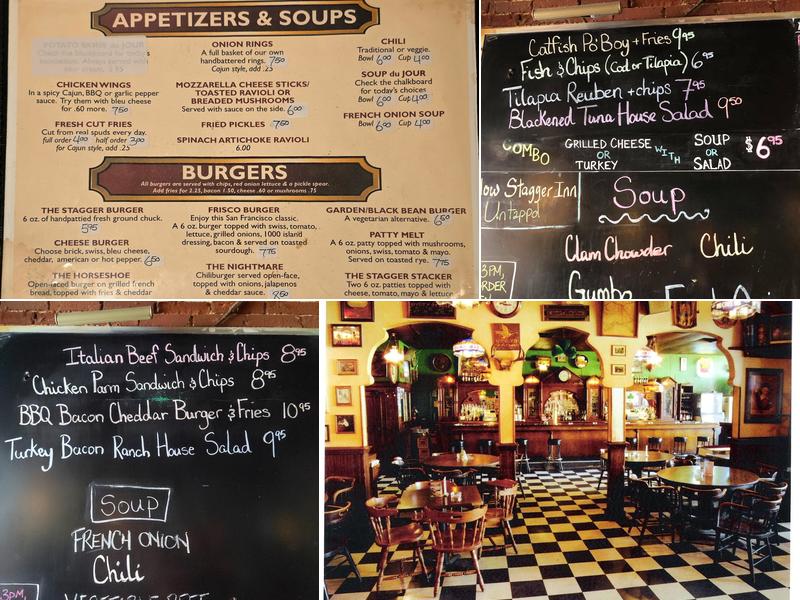 APPETIZERS & SOUPS
POTATO SKINS du JOUR
Check the blackboard for today's
ONION RINGS
A full basket of our own
handbattered rings. 7.50
Cajun style, add .25
CHILI
Traditional or veggie.
Bowl 6.00 Cup 4.00
CHICKEN WINGS
In a spicy Cajun, BBQ or garlic pepper
sauce. Try them with bleu cheese
for .60 more. 7.50
MOZZARELLA CHEESE STICKS/
TOASTED RAVIOLI OR
BREADED MUSHROOMS
Served with sauce on the side. 6.00
SOUP du JOUR
Check the chalkboard
for today's choices
Bowl 6.00 Cup 4.00
FRESH CUT FRIES
Cut from real spuds every day.
full order 4.00 half order 3.00
for Cajun style, add .25
FRIED PICKLES 7.50
SPINACH ARTICHOKE RAVIOLI
6.00
FRENCH ONION SOUP
Bowl 6.00 Cup 4.00
BURGERS
All burgers are served with chips, red onion lettuce & a pickle spear.
Add fries for 2.25, bacon 1.50, cheese .60 or mushrooms .75
THE STAGGER BURGER
6 oz. of handpattied fresh ground chuck.
5.95
CHEESE BURGER
Choose brick, swiss, bleu cheese,
cheddar, american or hot pepper. 6.50
THE HORSESHOE
Open-faced burger on grilled french
bread, topped with fries & cheddar
FRISCO BURGER
Enjoy this San Francisco classic.
A 6 oz. burger topped with swiss, tomato,
lettuce, grilled onions, 1000 island
dressing, bacon & served on toasted
sourdough. 7.75
THE NIGHTMARE
Chiliburger served open-face,
topped with onions, jalapenos
& cheddar sauce. 8.50
GARDEN/BLACK BEAN BURGER
A vegetarian alternative. 6.50
PATTY MELT
A 6 oz. patty topped with mushrooms,
onions, swiss, tomato & mayo.
Served on toasted rye. 7.75
THE STAGGER STACKER
Two 6 oz. patties topped with
cheese, tomato, mayo & lettuce
Catfish Po'Boy + Fries 9.95
Fish & Chips (Cod or Tilapia) 6.95
Tilapia Reuben + chips 7.95
Blackened Tuna House Salad 9.50
COMBO
GRILLED CHEESE
OR
TURKEY
WITH
SOUP
OR
SALAD
$6.95
ow Stagger Inn
Untappd
Soup
Clam Chowder Chili
3PM,
RDER
Gumbo
Italian Beef Sandwich & Chips 8.95
Chicken Parm Sandwich & Chips 8.95
BBQ Bacon Cheddar Burger & Fries 10.95
Turkey Bacon Ranch House Salad 9.95
Soup
FRENCH ONION
Chili
3PM,
VEGETABLE BEEF